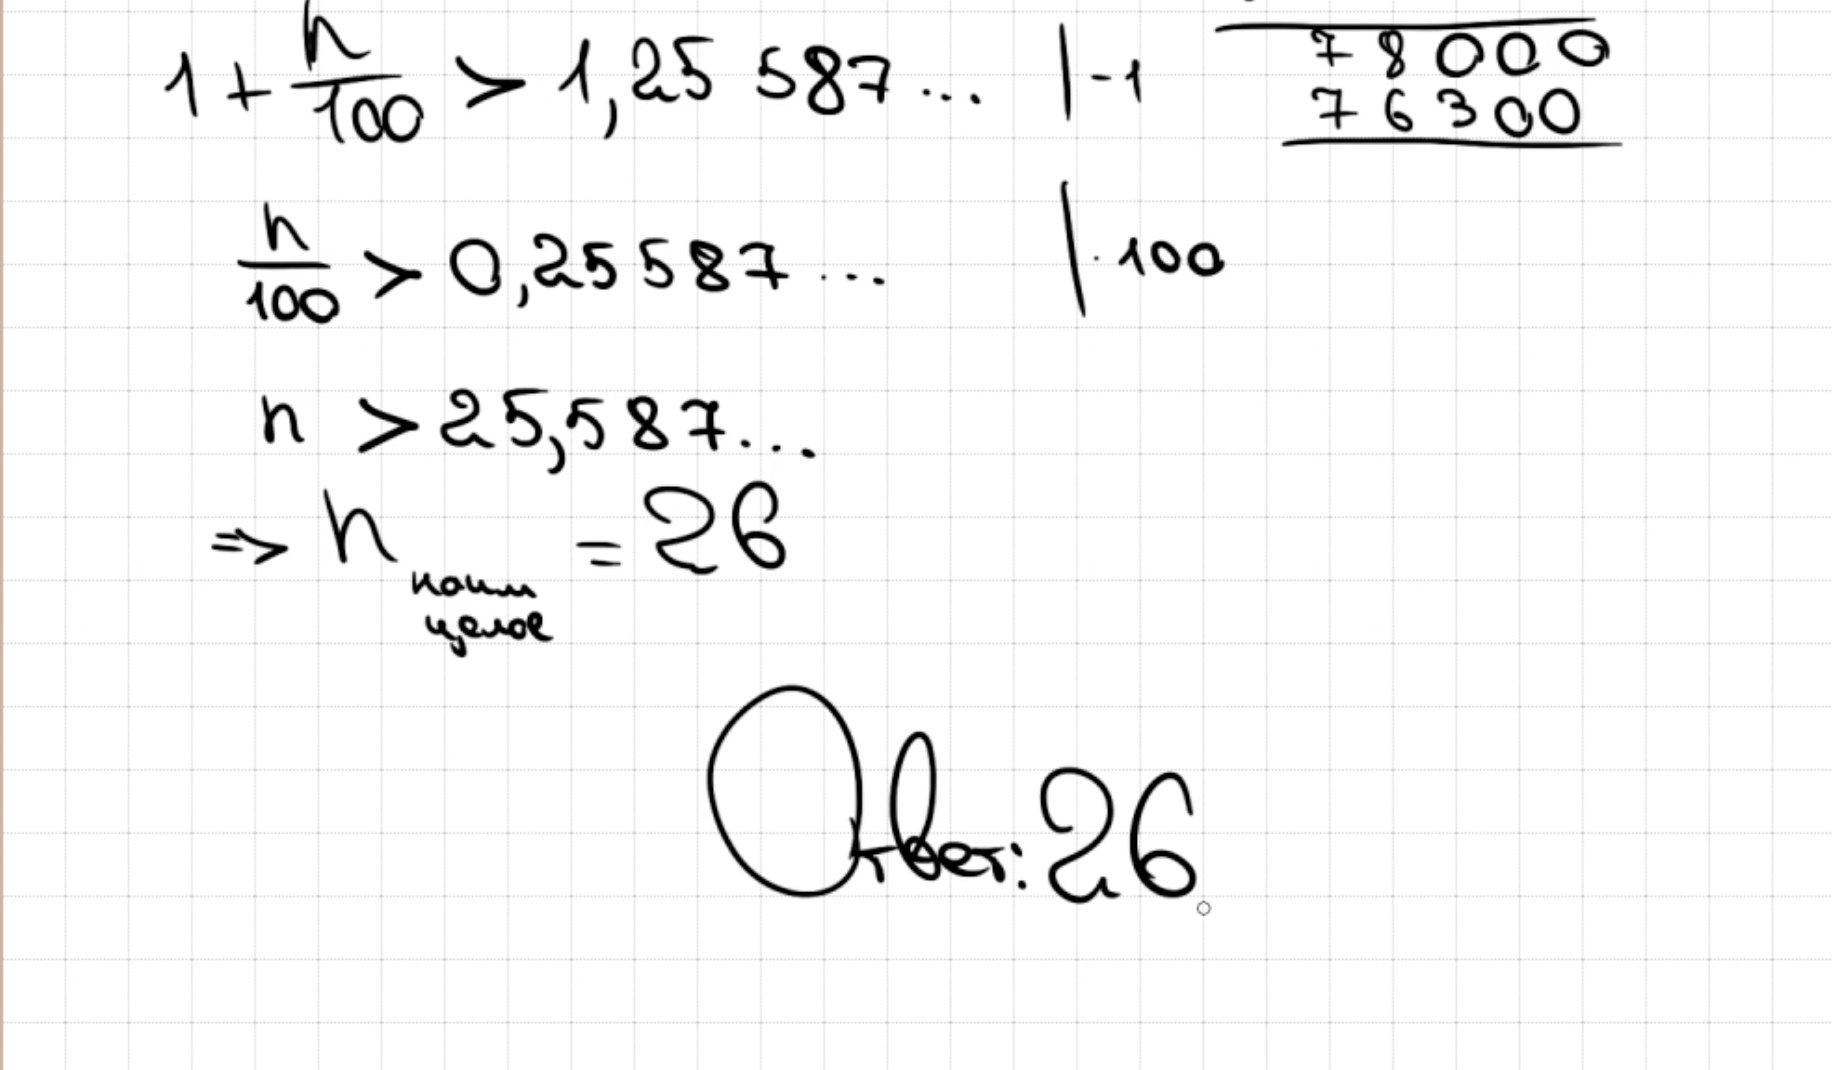 1 + n/100 > 1,25 587... | -1
78000
76300
n/100 > 0,25587... | · 100
n > 25,587...
=> n наим целое = 26
Ответ: 26